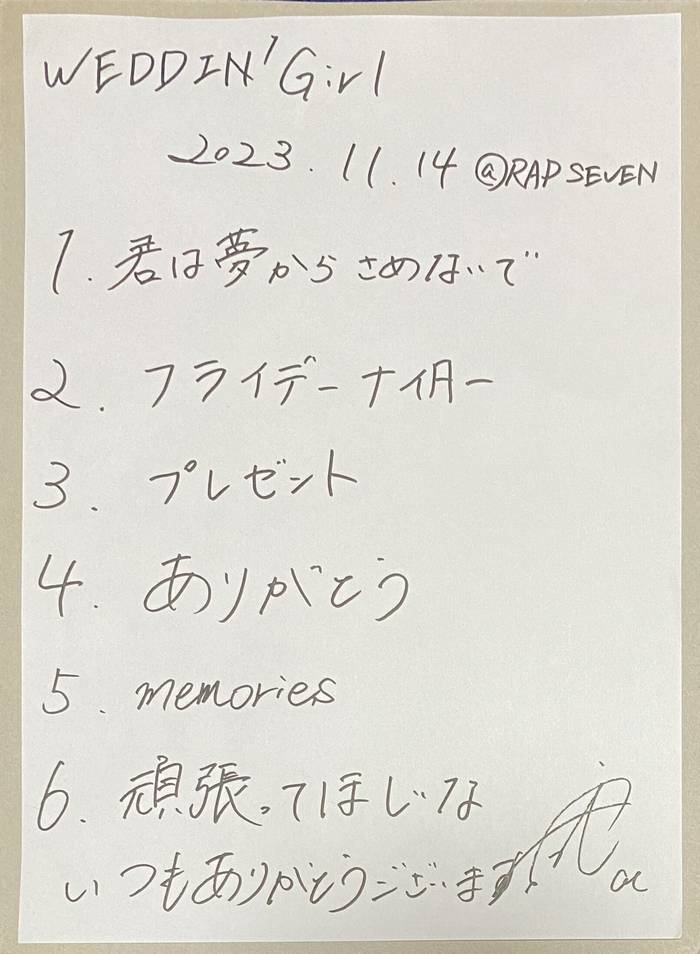 WEDDIN'Girl
2023.11.14 @RAD SEVEN
1. 君は夢からさめないで
2. フライデーナイター
3. プレゼント
4. ありがとう
5. memories
6. 頑張ってほしいな
いつもありがとうございます!